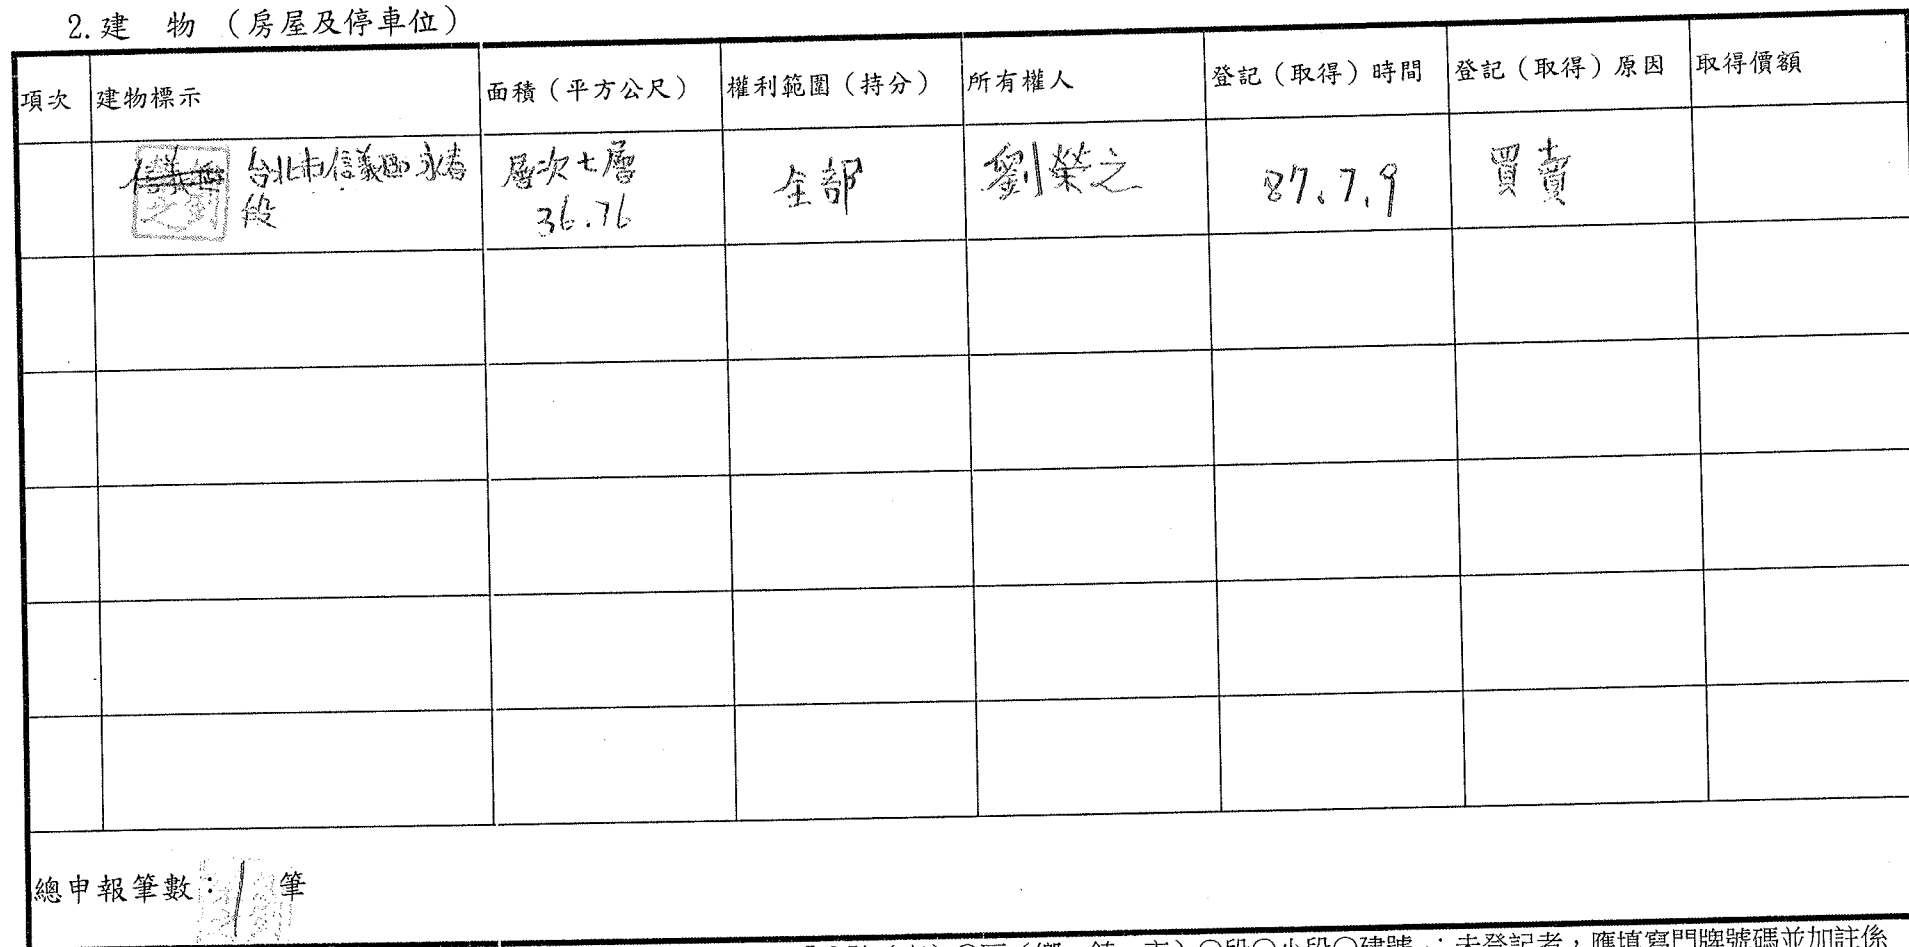 2. 建　物 （房屋及停車位）
項次 建物標示 面積（平方公尺） 權利範圍（持分） 所有權人 登記（取得）時間 登記（取得）原因 取得價額
信義區 台北市信義區永春 層次七層 全部 劉榮之 87.7.9 買賣
段 36.76
總申報筆數：1 筆
段○小段○建號 ；未登記者，應填寫門牌號碼並加註係